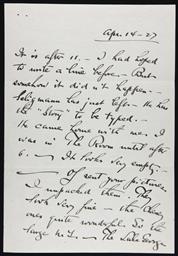 Apr. 14 - 27
It is after 11. - I had hoped
to write a line before - But
somehow it didn't happen -
Seligmann has just left - He has
the "Story" to be typed. -
He came home with me. I
was in The Room until after
6. - It looks very empty. -
- I sent your pictures
I unpacked them. They
look very fine - the
ones quite wonderful. So the
large - The Lake George